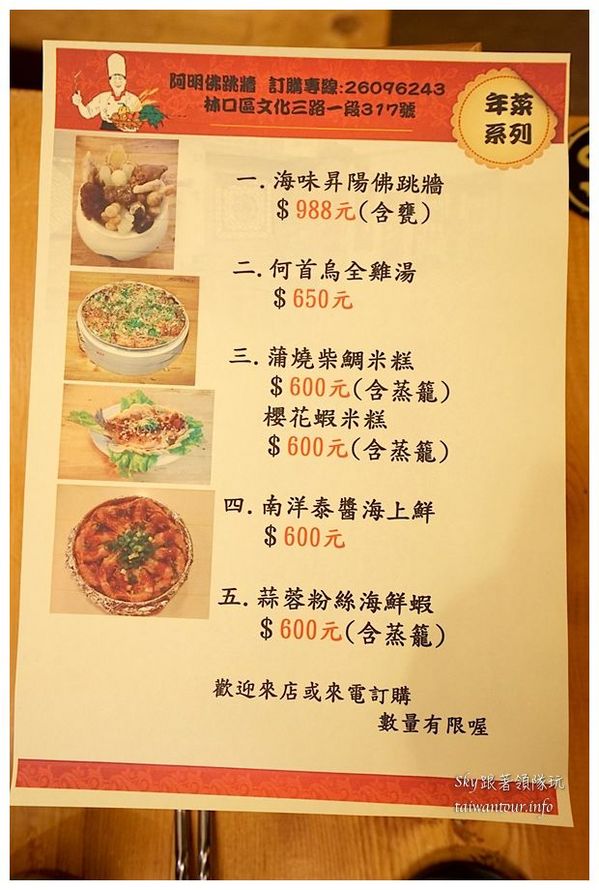 阿明佛跳牆 訂購專線:26096243
林口區文化三路一段317號
年菜
系列
一.海味昇陽佛跳牆
$988元(含甕)
二.何首烏全雞湯
$650元
三.蒲燒柴鯛米糕
$600元(含蒸籠)
櫻花蝦米糕
$600元(含蒸籠)
四.南洋泰醬海上鮮
$600元
五.蒜蓉粉絲海鮮蝦
$600元(含蒸籠)
歡迎來店或來電訂購
數量有限喔
Sky跟著領隊玩
taiwantour.info